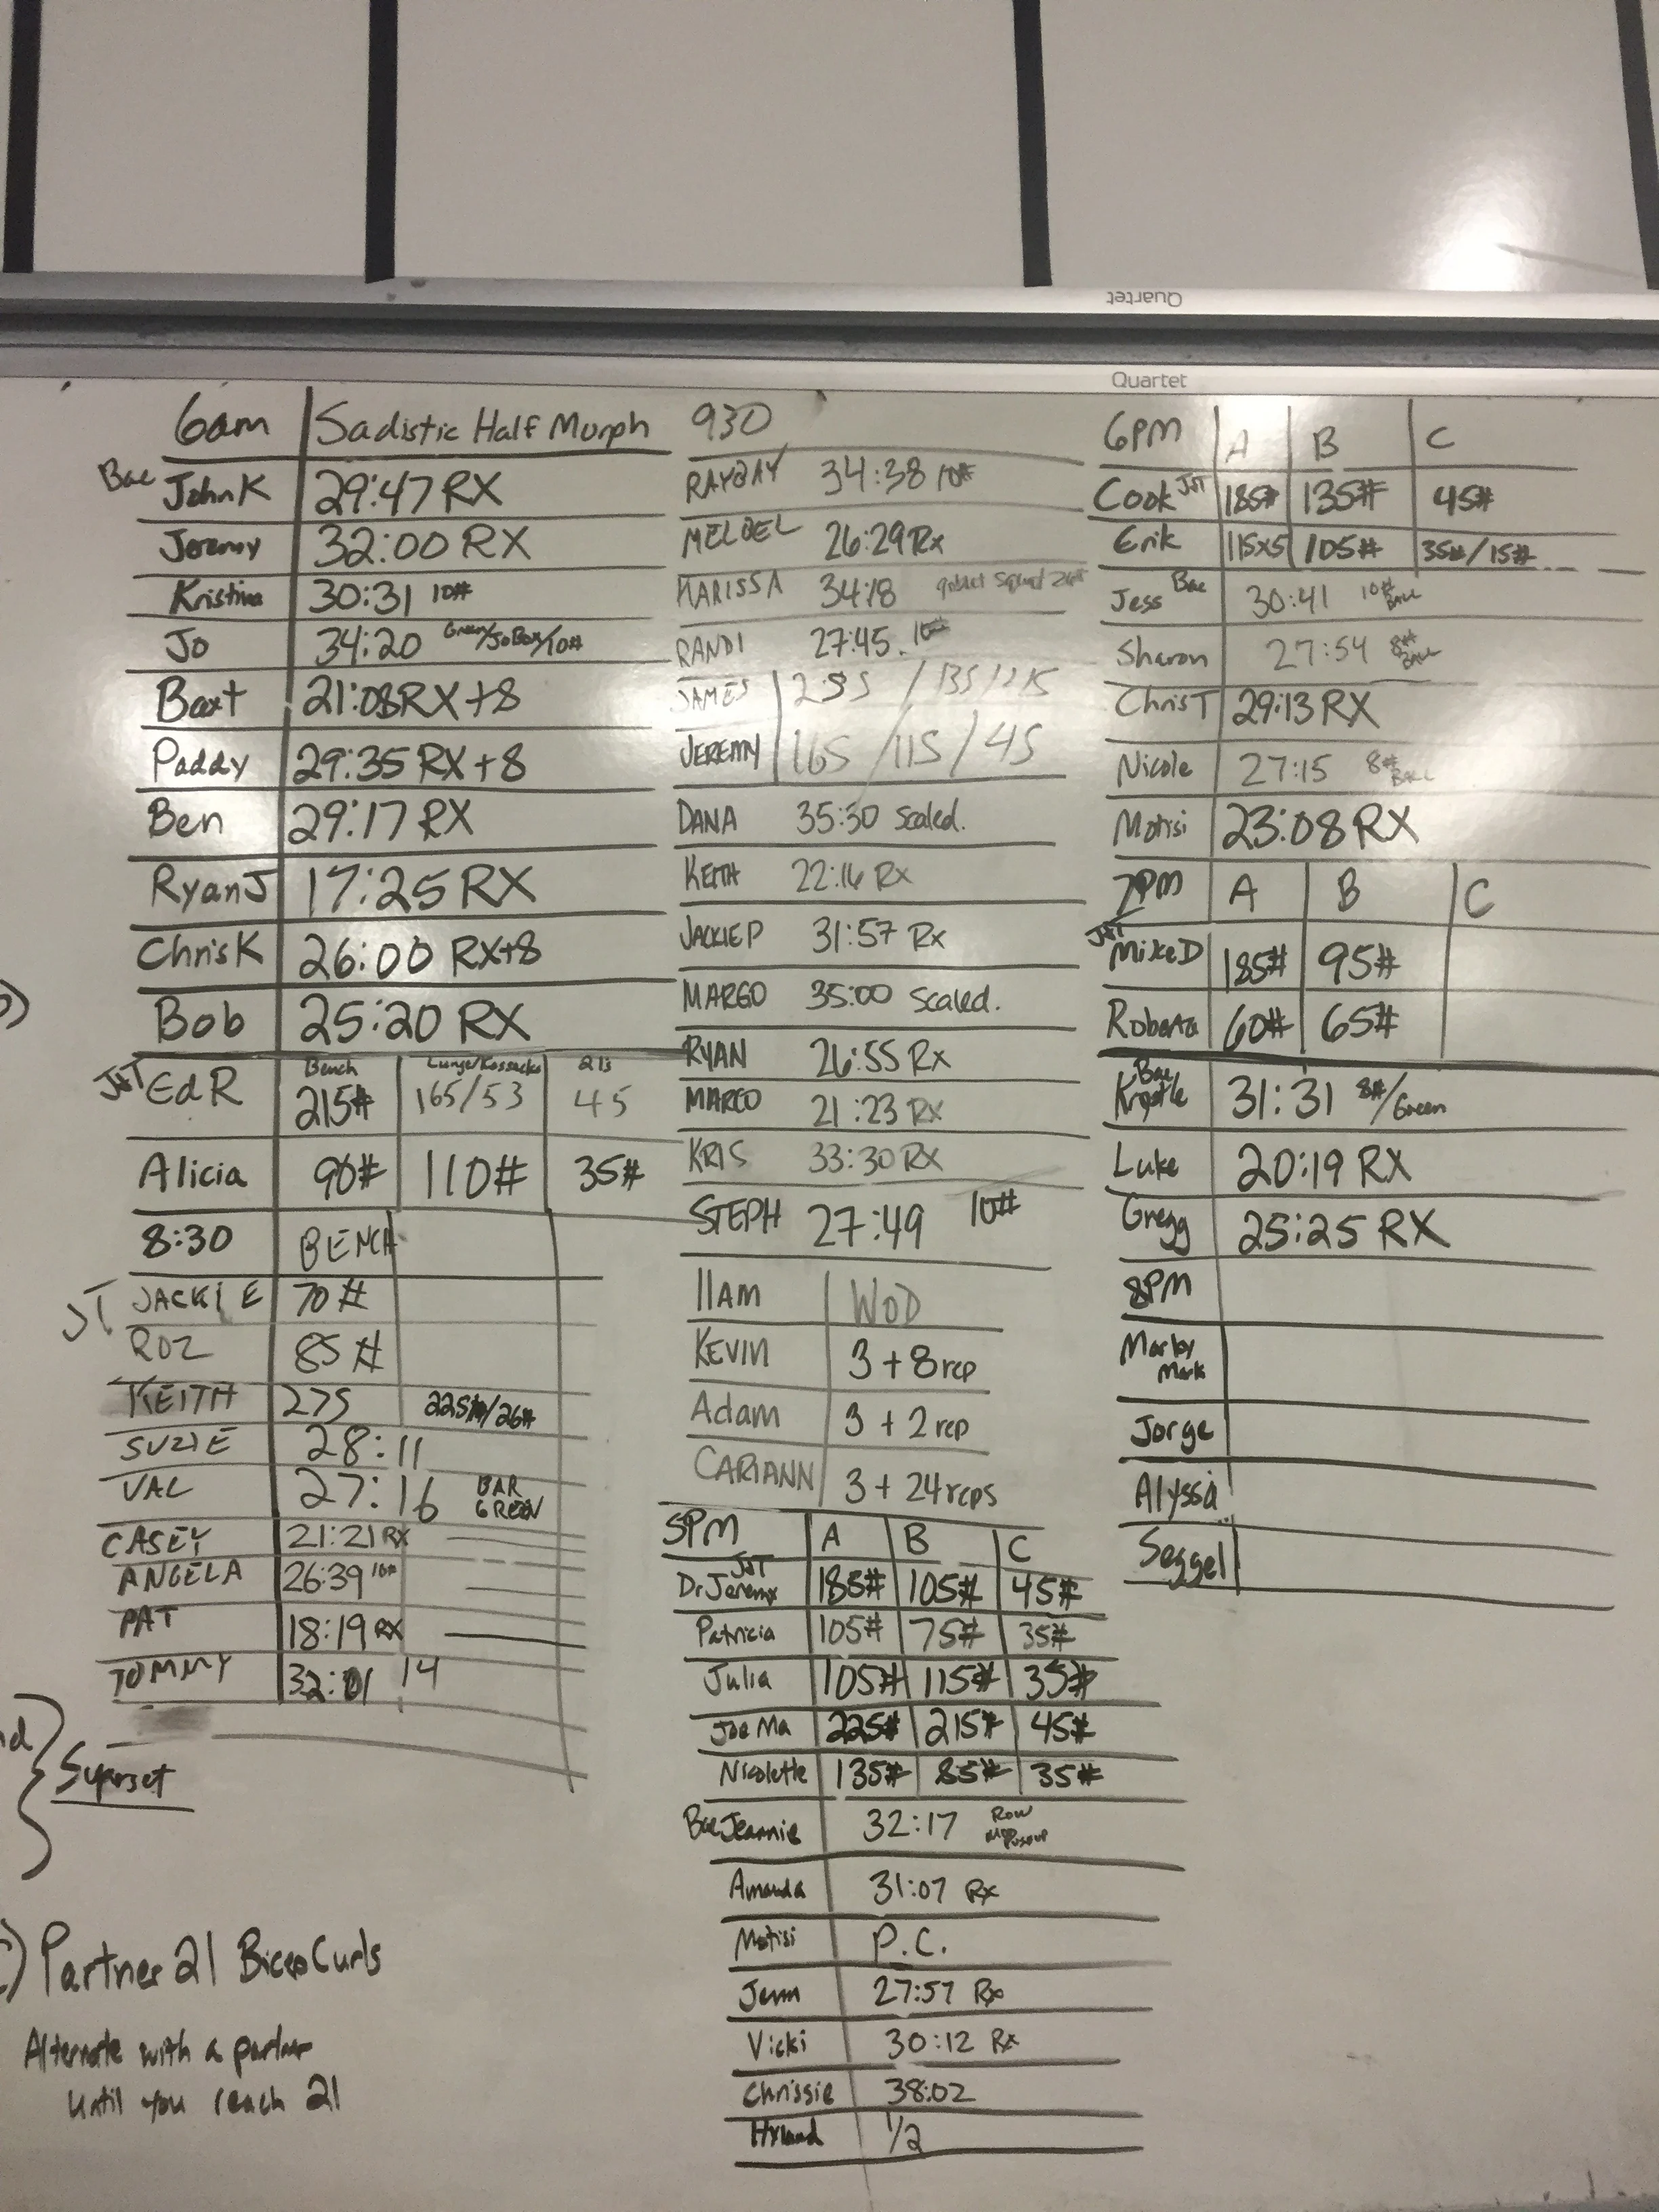 Quartet
Quartet
6am Sadistic Half Murph
Bae John K 29:47 RX
Jeremy 32:00 RX
Kristina 30:31 10#
Jo 34:20 Green/JoBox/10#
Baxt 21:08 RX+8
Paddy 29:35 RX+8
Ben 29:17 RX
Ryan J 17:25 RX
Chris K 26:00 RX+8
Bob 25:20 RX
Bench Lunge/Kossacks 21s
J&T Ed R 215# 165/53 45
Alicia 90# 110# 35#
8:30 BENCH
JT JACKIE 70#
ROZ 85#
KEITH 275 225#/26#
SUZIE 28:11
VAL 27:16 BAR GREEN
CASEY 21:21 RX
ANGELA 26:39 10#
PAT 18:19 RX
TOMMY 32:01 14
Superset
C) Partner 21 Bicep Curls
Alternate with a partner
until you reach 21
930
RAYBAY 34:38 10#
MELBEL 26:29 Rx
MARISSA 34:18 goblet squat
RANDI 27:45 10#
JAMES 255 / 135 /
JEREMY 165 / 115 / 45
DANA 35:30 scaled.
KEITH 22:16 Rx
JACKIE P 31:57 Rx
MARGO 35:00 scaled.
RYAN 26:55 Rx
MARCO 21:23 Rx
KRIS 33:30 RX
STEPH 27:49 10#
11AM WOD
KEVIN 3 + 8 rep
Adam 3 + 2 rep
CARIANN 3 + 24 reps
5PM A B C
J&T
Dr Jeremy 185# 105# 45#
Patricia 105# 75# 35#
Julia 105# 115# 35#
Joe Ma 225# 215# 45#
Nicolette 135# 85# 35#
Bae Jeannie 32:17 Row
Amanda 31:07 Rx
Motisi P.C.
Jenn 27:57 Rx
Vicki 30:12 Rx
Chrissie 38:02
Hyland 1/2
6PM A B C
Cook J&T 185# 135# 45#
Erik 115x5 105# 35#/15#
Jess Bae 30:41 10# BALL
Sharon 27:54 8# BALL
Chris T 29:13 RX
Nicole 27:15 8# BALL
Motisi 23:08 RX
7PM A B C
J&T
Mike D 185# 95#
Roberta 60# 65#
Bae
Krystle 31:31 8#/Green
Luke 20:19 RX
Gregg 25:25 RX
8PM
Marky
Mark
Jorge
Alyssa
Seggel